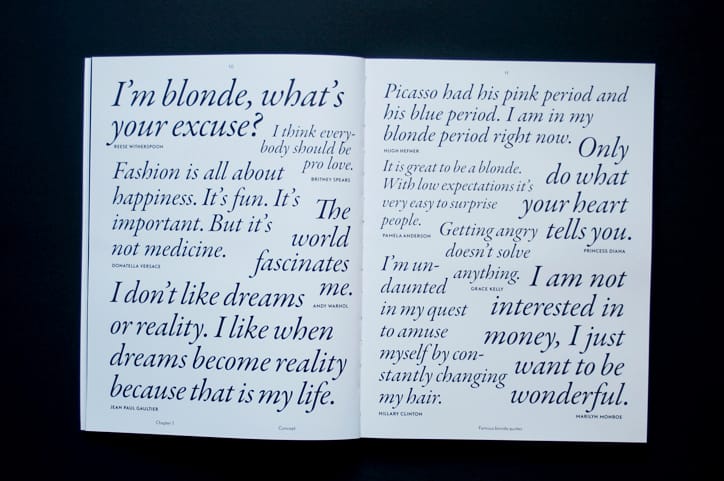 10
I'm blonde, what's
your excuse?
REESE WITHERSPOON
I think every-
body should be
pro love.
BRITNEY SPEARS
Fashion is all about
happiness. It's fun. It's
important. But it's
not medicine.
DONATELLA VERSACE
The
world
fascinates
me.
ANDY WARHOL
I don't like dreams
or reality. I like when
dreams become reality
because that is my life.
JEAN PAUL GAULTIER
Chapter 1
Concept
11
Picasso had his pink period and
his blue period. I am in my
blonde period right now.
HUGH HEFNER
Only
do what
your heart
tells you.
PRINCESS DIANA
It is great to be a blonde.
With low expectations it's
very easy to surprise
people.
PAMELA ANDERSON
Getting angry
doesn't solve
anything.
GRACE KELLY
I'm un-
daunted
in my quest
to amuse
myself by con-
stantly changing
my hair.
HILLARY CLINTON
I am not
interested in
money, I just
want to be
wonderful.
MARILYN MONROE
Famous blonde quotes